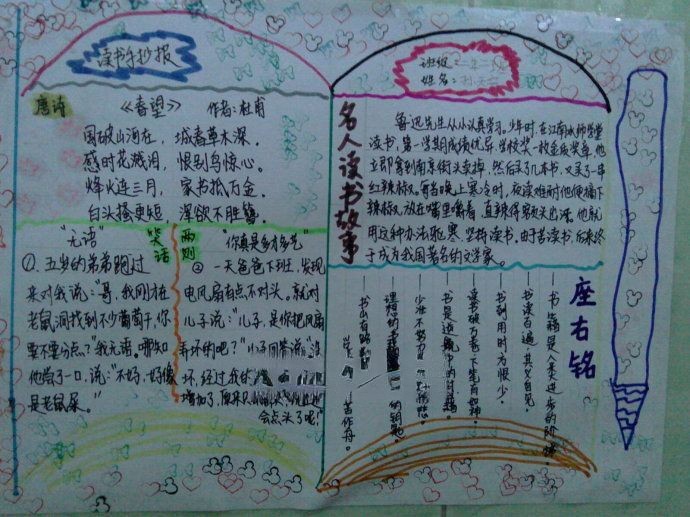 读书手抄报
班级:
姓名:
唐诗
《春望》 作者:杜甫
国破山河在,城春草木深。
感时花溅泪,恨别鸟惊心。
烽火连三月,家书抵万金。
白头搔更短,浑欲不胜簪。
笑话
两则
"无语"
①、五岁的弟弟跑过
来对我说:"哥,我刚在
老鼠洞找到不少葡萄干,你
要不要分点?"我无语。哪知
他尝了一口,说:"不妈,好像
是老鼠屎。"
"你真是多才多艺"
② 一天爸爸下班,发现
电风扇有点不对头。就对
儿子说:"儿子,是你把风扇
弄坏的吧?"小子回答说:"没
坏,经过我
增加了,原来只
会点头了呢
名人读书故事
鲁迅先生从小认真学习。少年时,在江南水师学堂
读书,第一学期成绩优异,学校奖一枚金质奖章,他
立即拿到南京街头卖掉,然后买了几本书,又买了一串
红辣椒。每当晚上寒冷时,夜读难耐,他便摘下
辣椒,放在嘴里嚼着,直辣得额头出汗。他就
用这种办法驱寒,坚持读书。由于苦读书,后来终
于成为我国著名的文学家。
座右铭
——书籍是人类进步的阶梯。
——书读百遍,其义自见。
——书到用时方恨少。
——读书破万卷,下笔如有神。